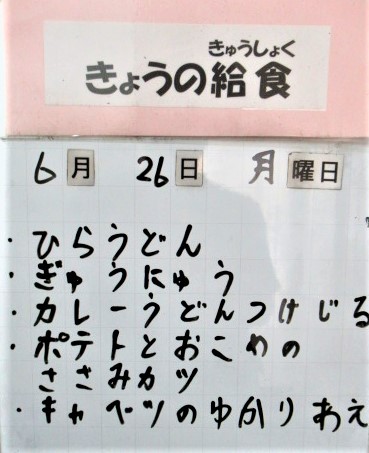 きゅうしょく
きょうの給食
6月 26日 月曜日
・ひらうどん
・ぎゅうにゅう
・カレーうどんつけじる
・ポテトとおこめの
ささみカツ
・キャベツのゆかりあえ